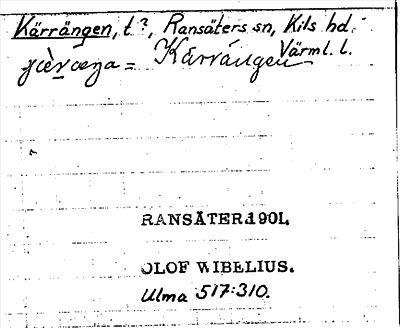 Kärrängen, t?, Ransäters sn, Kils hd.
Värml. l.
= Kärrängen
RANSÄTER 1901.
OLOF WIBELIUS.
Ulma 517:310.